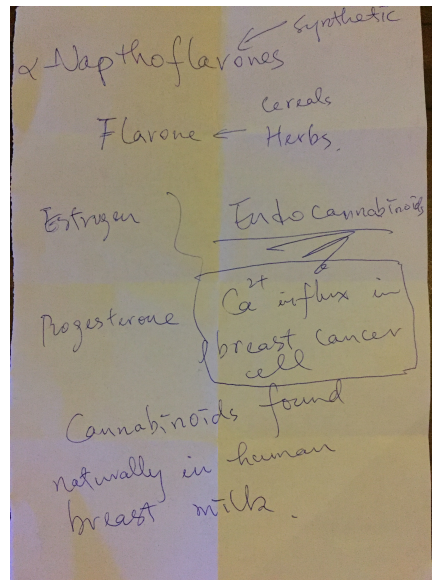 synthetic
α-Napthoflavones
cereals
Flavone ← Herbs.
Estrogen
Endocannabinoids
Progesterone
Ca2+ influx in
breast cancer
cell
Cannabinoids found
naturally in human
breast milk.